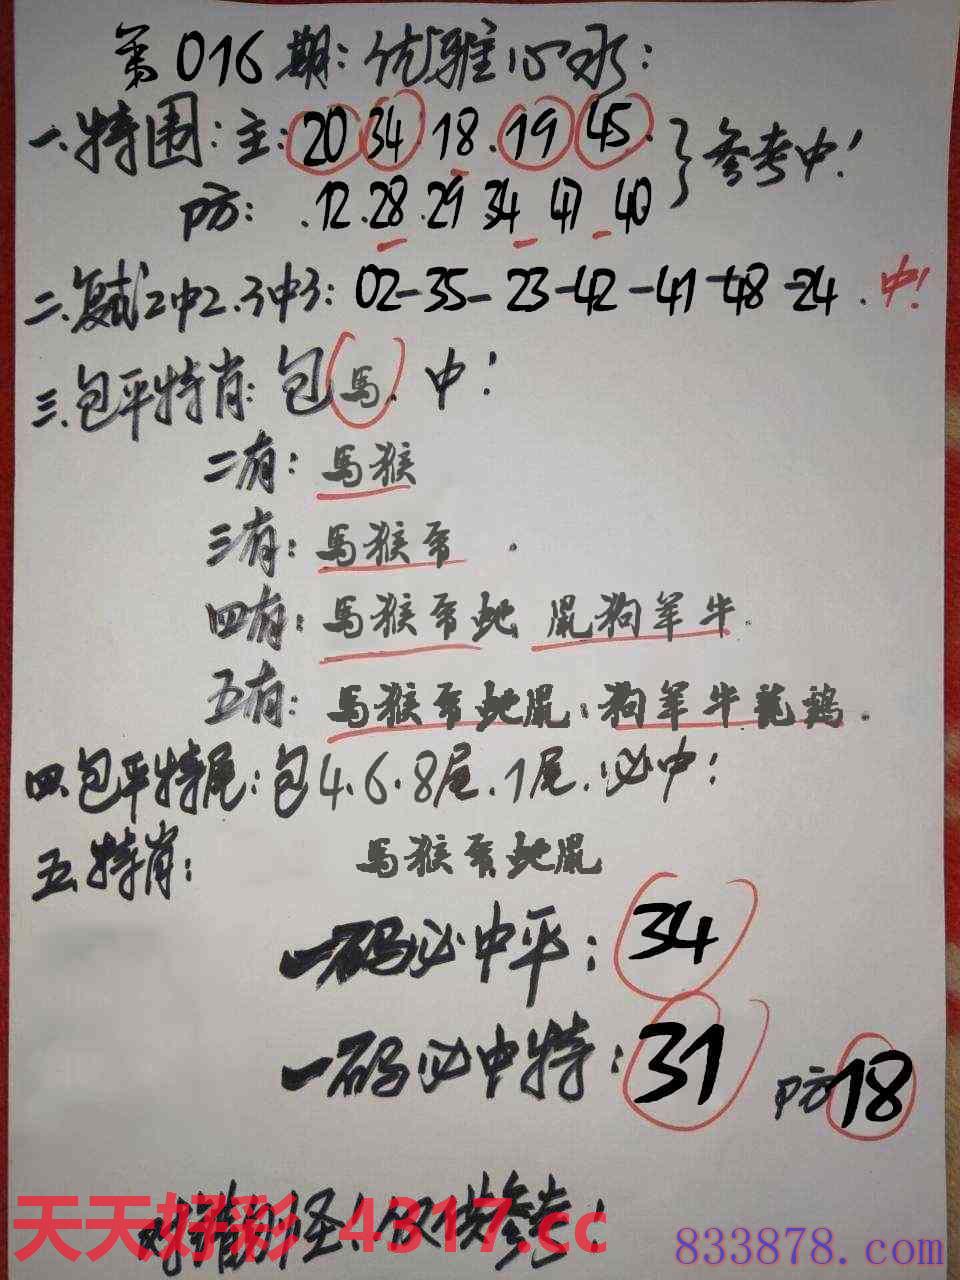 第016期：优雅心水：
一.特围：主：20 34.18.19.45.}参考中！
防：.12.28.29 34 47 40
二.复式2中2.3中3：02-35-23-42-41-48-24.中！
三.包平特肖：包馬.中！
二有：馬猴
三有：馬猴帝.
四有：馬猴帝虵 鼠狗羊牛.
五有：馬猴帝虵鼠：狗羊牛龍鷄.
四.包平特尾：包4.6.8尾.1尾.必中！
五.特肖：馬猴帝虵鼠
一码必中平：34
一码必中特：31 防18
仅供参考！
天天好彩 4317.cc
833878.com